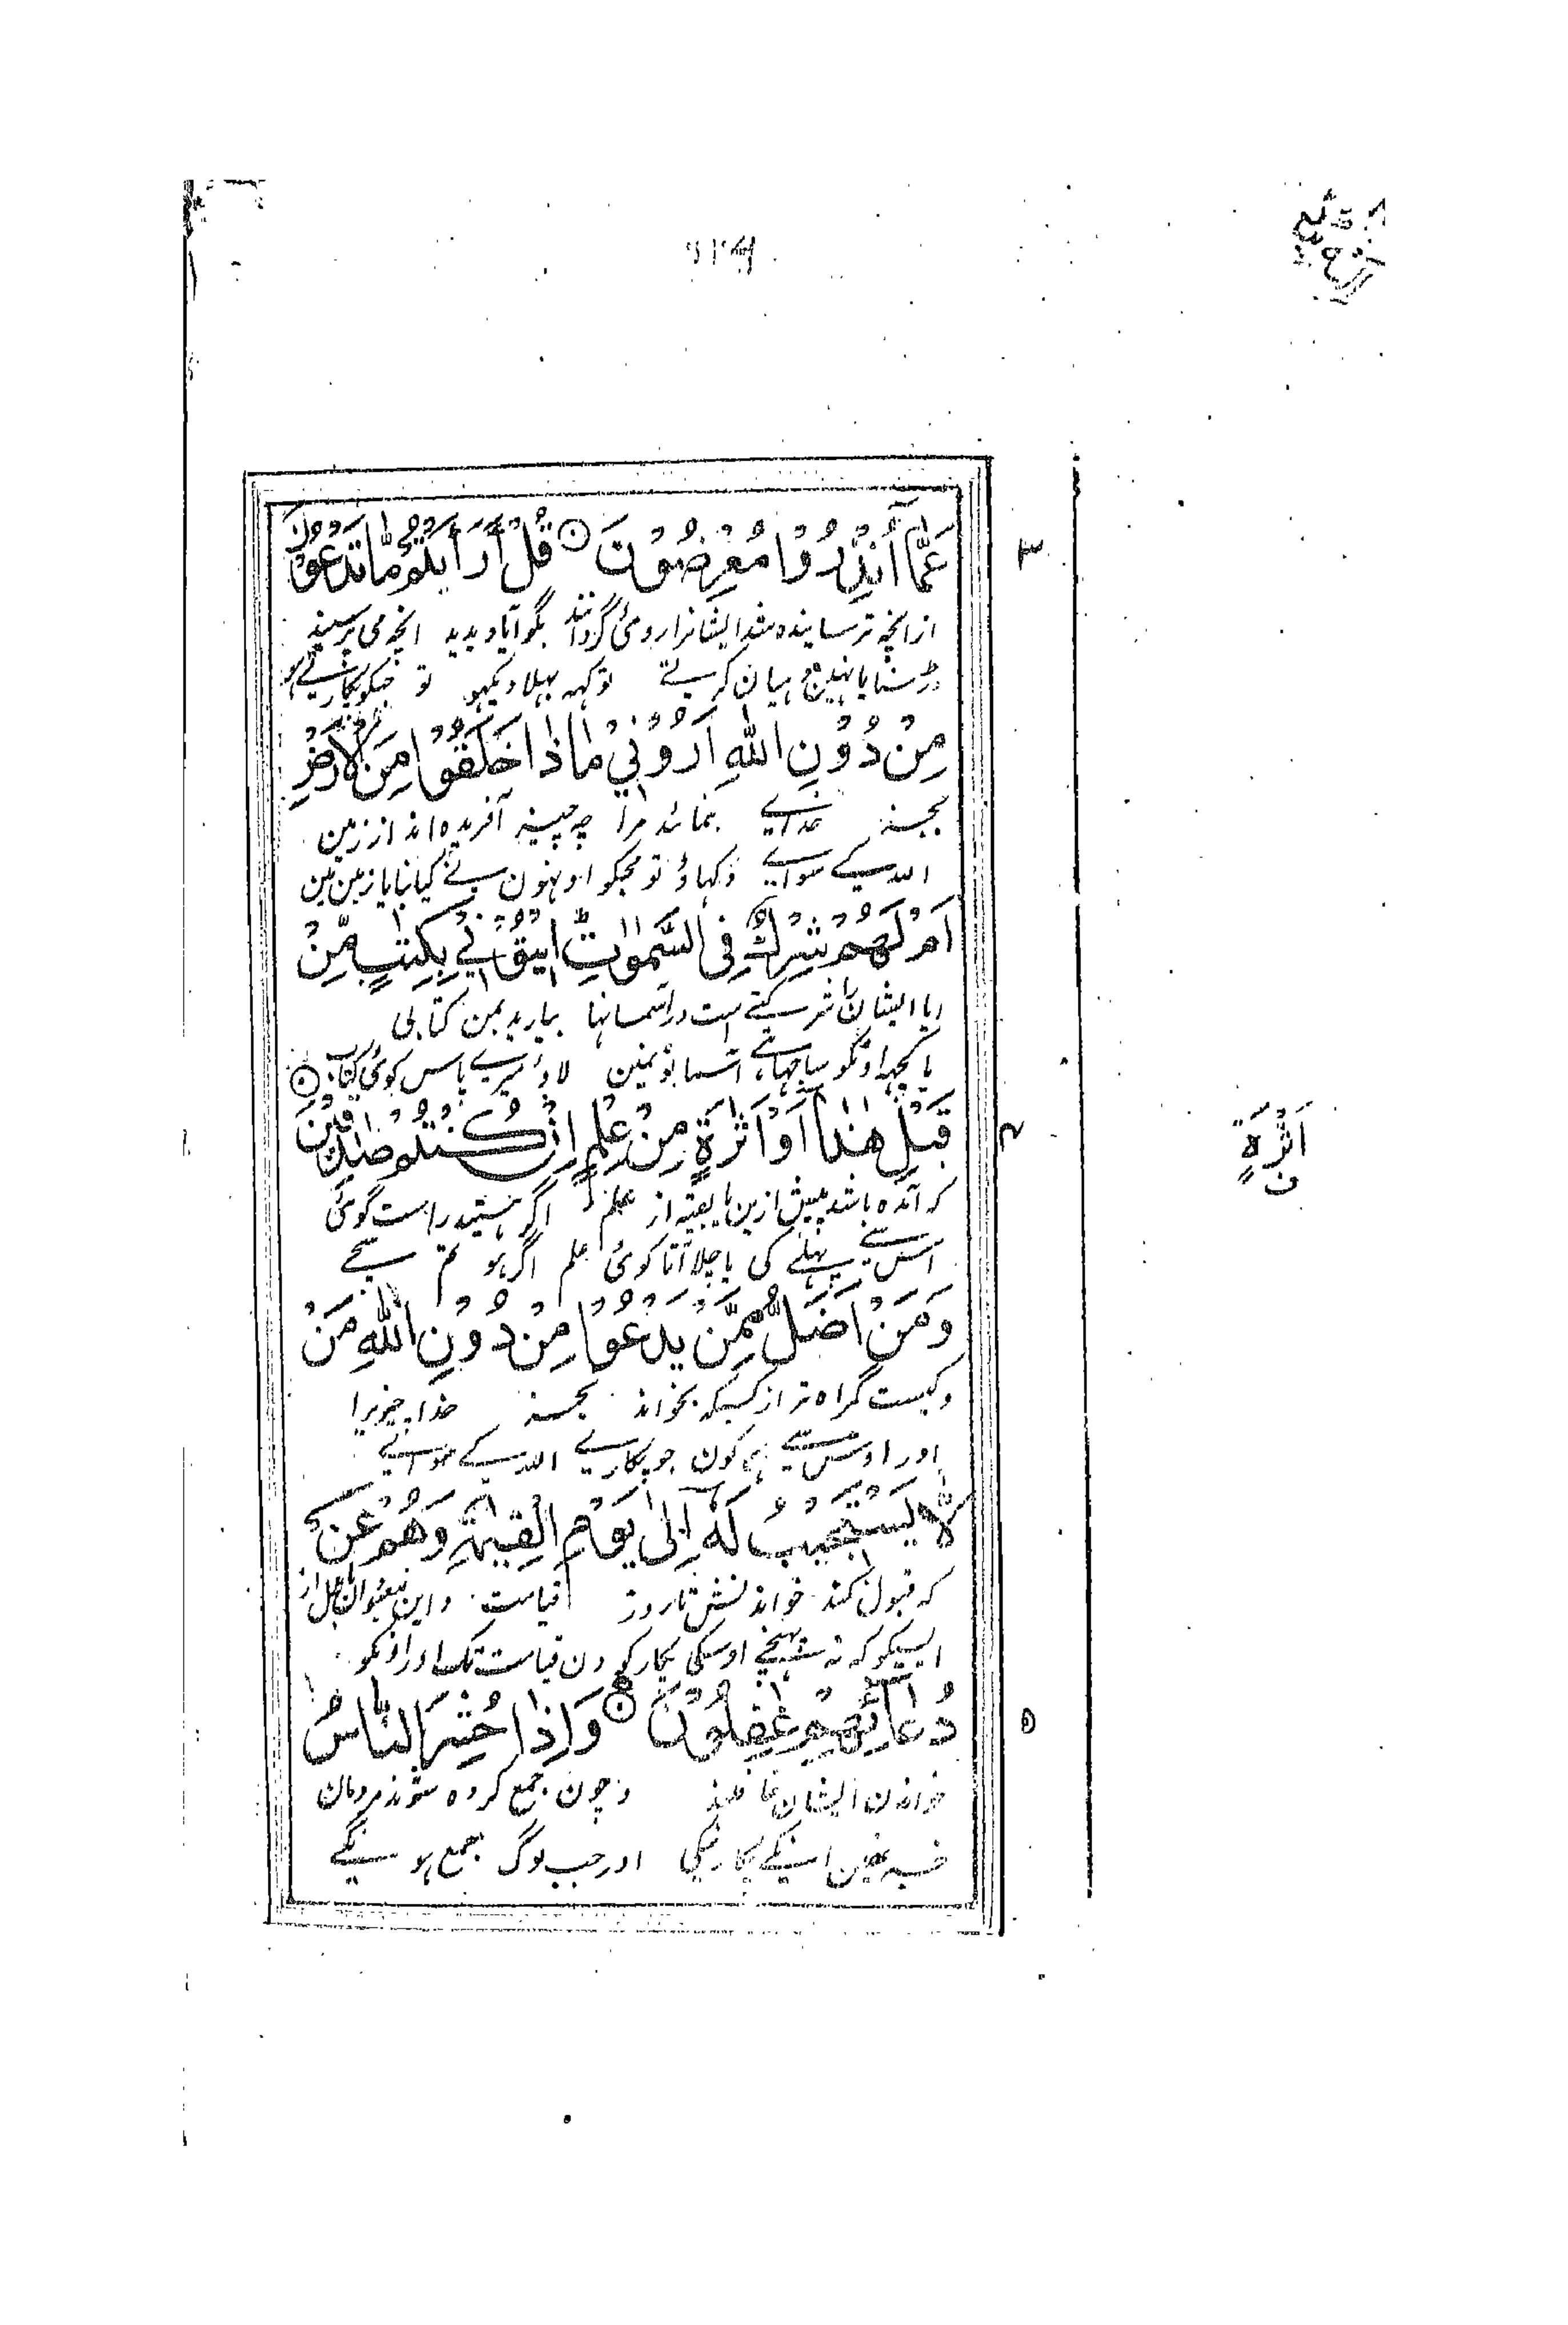 عَمَّآ اُنْذِرُوْا مُعْرِضُوْنَ قُلْ اَرَاَيْتُمْ مَّا تَدْعُوْنَ
۳
ازانچه ترسانیده شد ایشانرا روی گردانند بگو آیا دیدید انچه می پرستید
ڈر سنا یا نہین دہیان کرتے تو کہہ بہلا دیکہو تو جنکو پکارتے ہو
مِنْ دُوْنِ اللّٰهِ اَرُوْنِيْ مَاذَا خَلَقُوْا مِنَ الْاَرْضِ
بجز خدای بنمائید مرا چه چیز آفریده اند از زمین
اللہ کے سوای دکہاؤ تو مجکو اونہون نے کیا بنایا زمین مین
اَمْ لَهُمْ شِرْكٌ فِي السَّمٰوٰتِ اِيْتُوْنِيْ بِكِتٰبٍ مِّنْ
یا ایشان را شرکتی است در آسمانها بیارید بمن کتابی
یا کچہہ اونکو ساجہا ہے آسمانو نمین لاؤ میرے پاس کوئی کتاب
قَبْلِ هٰذَا اَوْ اَثٰرَةٍ مِّنْ عِلْمٍ اِنْ كُنْتُمْ صٰدِقِيْنَ
۴
اَثْرَةٍ
ن
که آمده باشد پیش ازین یا بقیه از علم اگر هستید راست گوی
اس سے پہلے کی یا چلا آتا کوئی علم اگر ہو تم سچے
وَمَنْ اَضَلُّ مِمَّنْ يَّدْعُوْا مِنْ دُوْنِ اللّٰهِ مَنْ
وکیست گمراه تر از کسیکه بخواند بجز خدا چیزیرا
اور اوس سے کون جو پکارے اللہ کے سوائے
لَّا يَسْتَجِيْبُ لَهٗٓ اِلٰى يَوْمِ الْقِيٰمَةِ وَهُمْ عَنْ
که قبول نکند خواندنش تا روز قیامت و این از
ایسیکو کہ نہ پہنچے اوسکی پکار کو دن قیامت تک اور اونکو
دُعَآئِهِمْ غٰفِلُوْنَ وَاِذَا حُشِرَ النَّاسُ
۵
خواندن ایشان غافلند و چون جمع کرده شوند مردمان
خبر نہین انکے پکارنیکی اور جب لوگ جمع ہو نگے